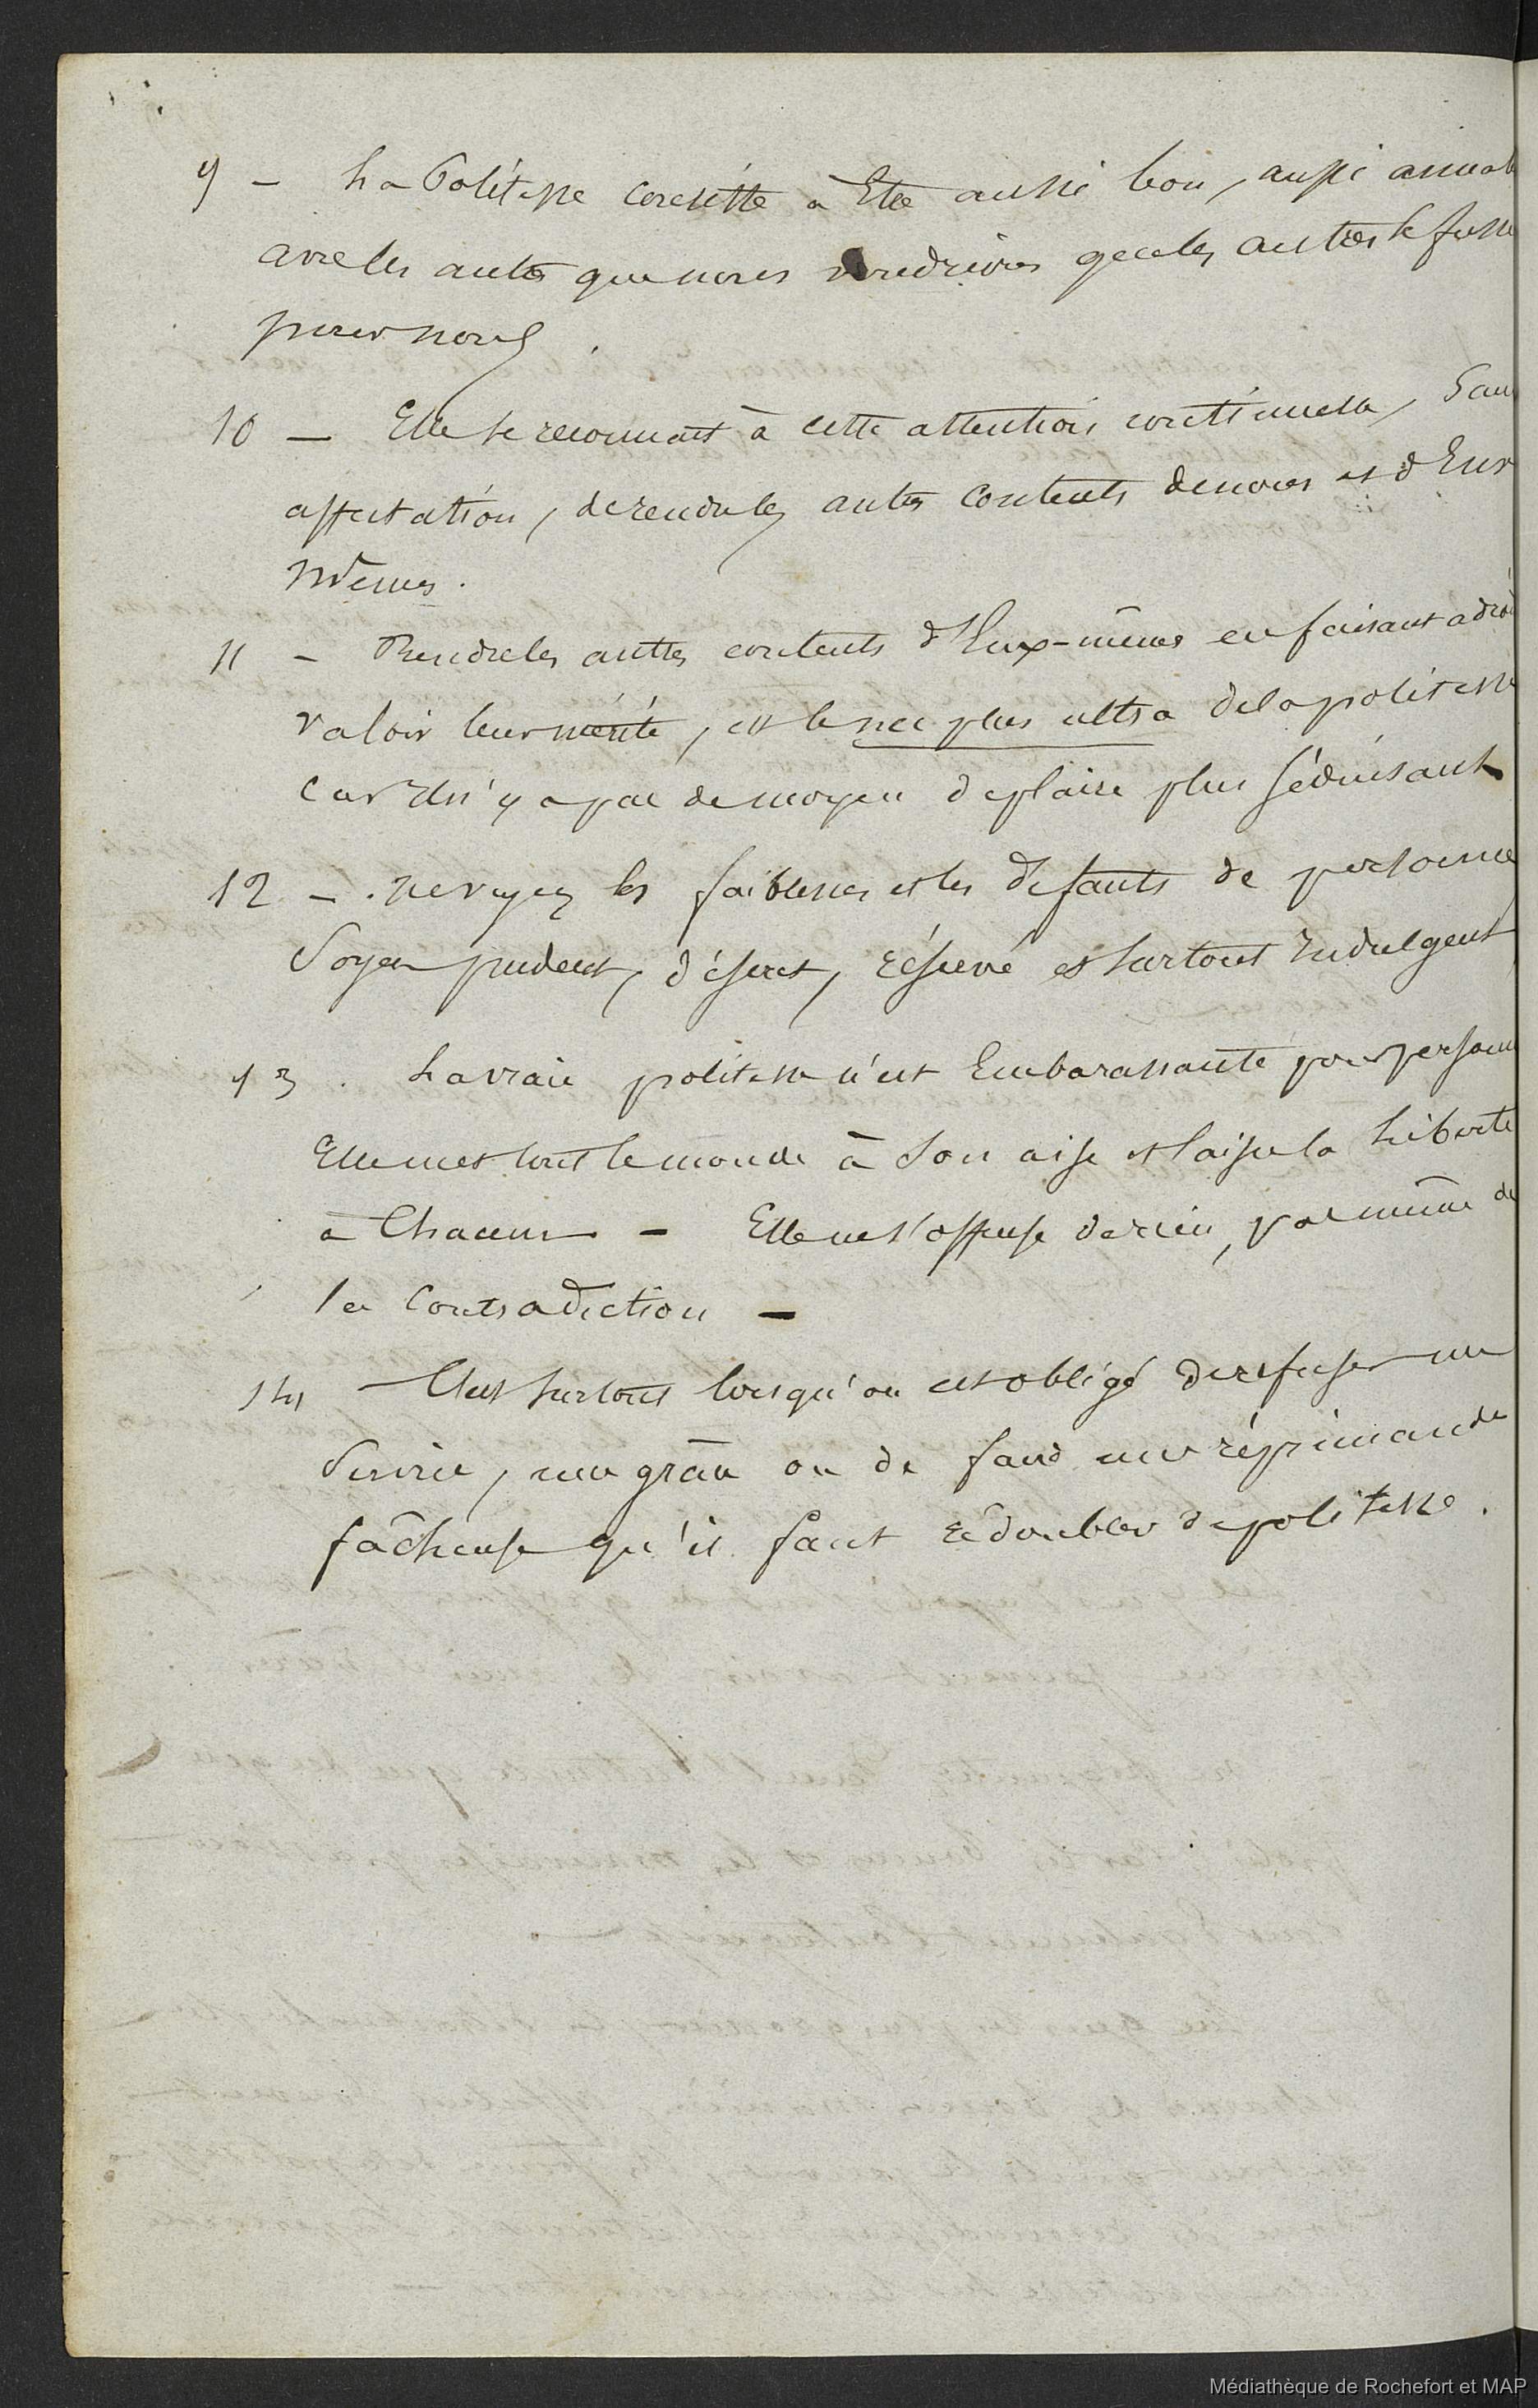 9 – La Politesse consiste à Etre aussi bon, aussi aimab
avec les autres que nous voudrions que les autres le fusse
pour nous.
10 – Elle se reconnait à cette attention continuelle, Sans
affectation, de rendre les autres contents de nous et d'Eux
mêmes.
11 – Rendre les autres contents d'Eux-mêmes en faisant adroi
valoir leur mérite, est le nec plus ultra de la politesse
car Il n'y a pas de moyen de plaire plus séduisant.
12 – . ne voyez les faiblesses et les défauts de personne
Soyez prudent, discret, réservé et surtout Indulgent
13 . La vraie politesse n'est Embarassante pour personne
Elle met tout le monde à Son aise et laisse la Liberté
à Chacun – Elle ne s'offense de rien, pas même de
la Contradiction –
14 – C'est surtout lorsqu'on est obligé de refuser un
Service, une grâce ou de faire une réprimande
fâcheuse qu'il faut redoubler de politesse.
Médiathèque de Rochefort et MAP